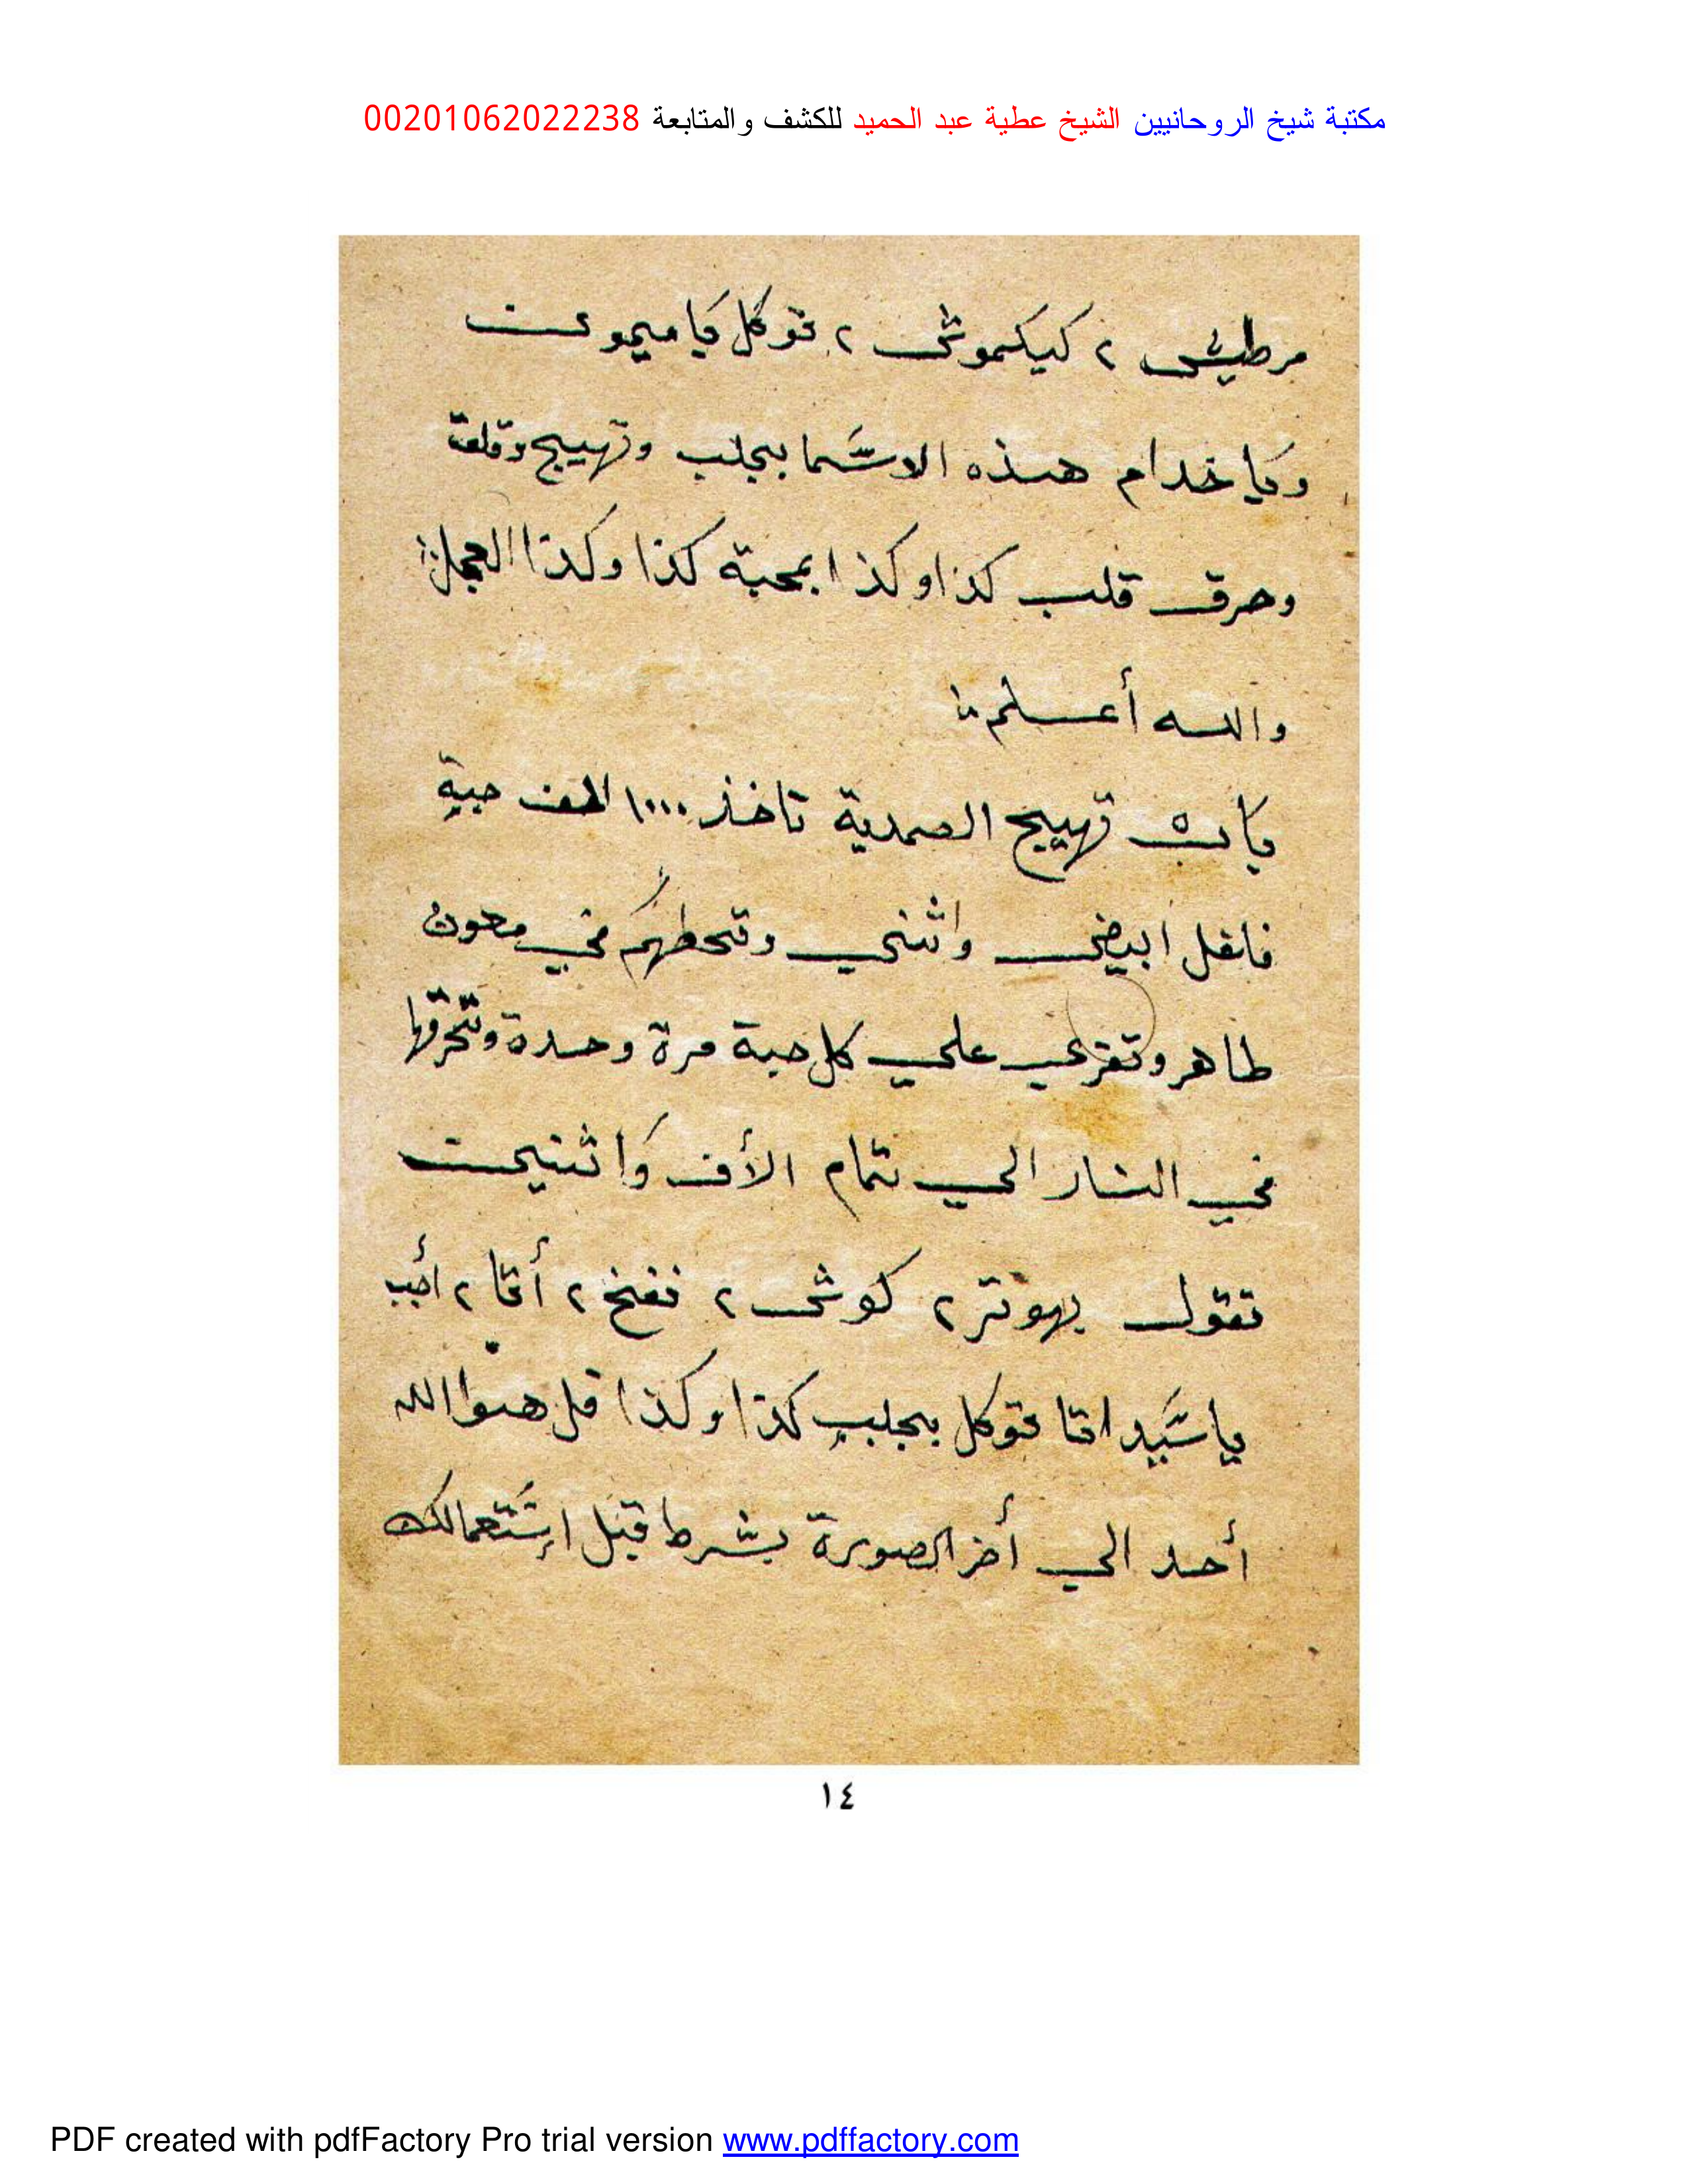 مكتبة شيخ الروحانيين الشيخ عطية عبد الحميد للكشف والمتابعة 00201062022238
مرطيش ٢ كيكموش ٢ توكل يا ميمون
ويا خدام هذه الاسما بجلب وتهييج وقلق
وحرق قلب كذا وكذا بمحبة كذا وكذا العجل
والله أعلم
باب تهييج الصمدية تاخذ ١٠٠٠ الف حبة
فلفل ابيض واثني وتحطهم في معون
طاهر وتقرى على كل حبة مرة وحدة وتحرقها
في النار الي تمام الأف واثنين
تقول يهوتر ٢ كوش ٢ نفخ ٢ أقا ٢ أجب
يا سيد اقا توكل بجلب كذا وكذا قل هوا الله
أحد الي أخر الصورة بشرط قبل إستعمالك
١٤
PDF created with pdfFactory Pro trial version www.pdffactory.com